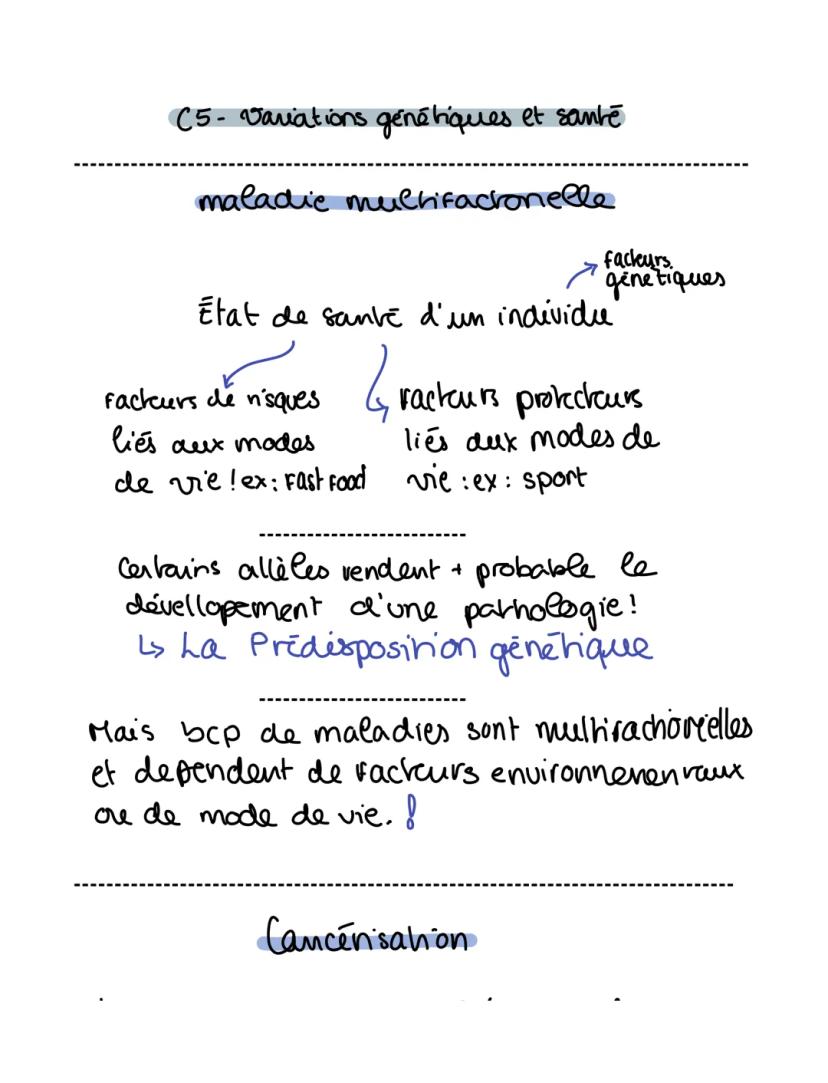 C5 - Variations génétiques et santé
maladie multifactorielle
facteurs
génétiques
État de santé d'un individu
Facteurs de risques
liés aux modes
de vie ! ex : Fast Food
facteurs protecteurs
liés aux modes de
vie : ex : sport
Certains allèles rendent + probable le
dévellopement d'une pathologie !
↳ La Prédisposition génétique
Mais bcp de maladies sont multifactorielles
et dependent de facteurs environnementaux
ou de mode de vie. !
Cancérisation